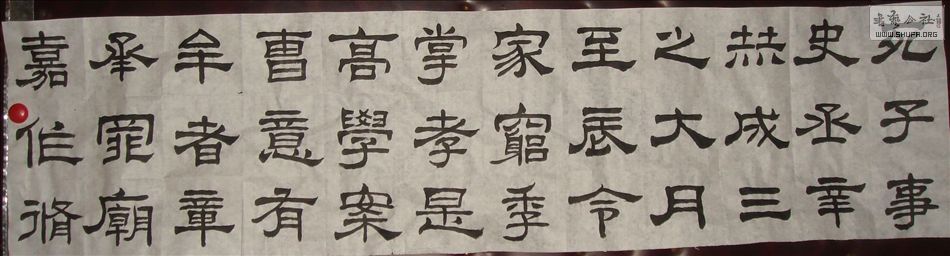 子事
史丞辛
赫成三
之大月
至辰令
家窮季
掌孝是
高學案
曹意有
牟者章
承罪廟
嘉作脩
书艺公社
WWW.SHUFA.ORG